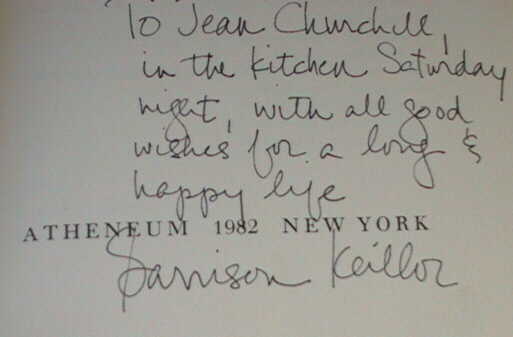 To Jean Churchill,
in the kitchen Saturday
night, with all good
wishes for a long &
happy life
ATHENEUM 1982 NEW YORK
Garrison Keillor